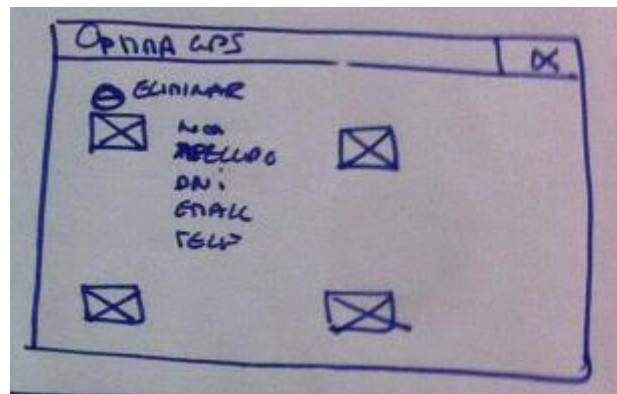 OPTIMA GPS
X
ELIMINAR
APELLIDO
DNI
EMAIL
TELF